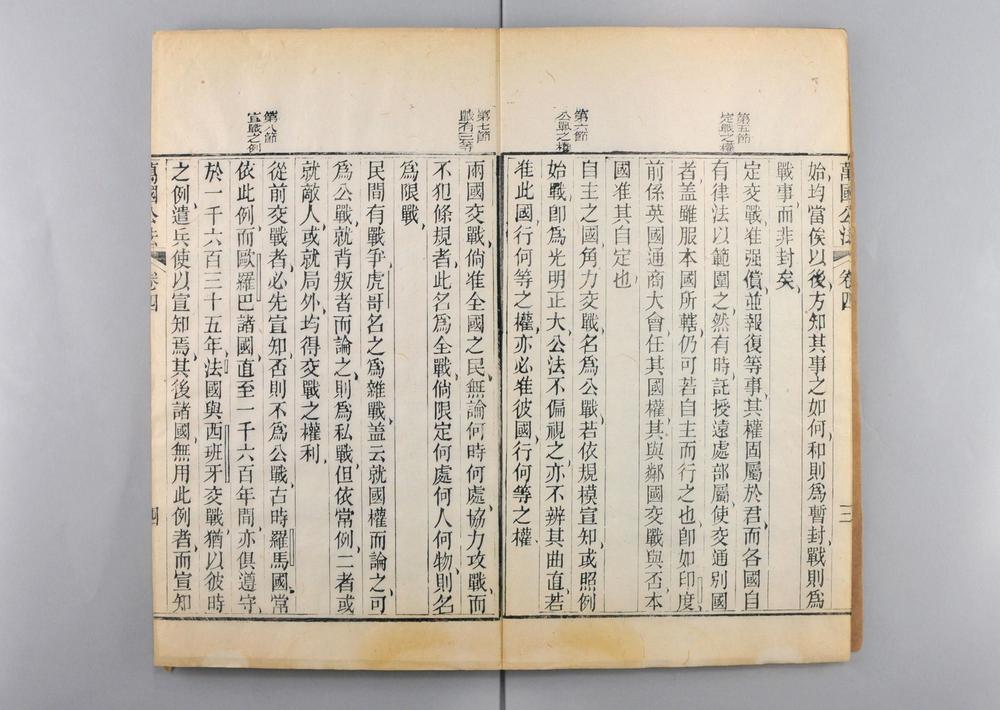 萬國公法 卷四 三
始均當俟以後方知其事之如何和則爲暫封戰則爲
戰事而非封矣
第五節
定戰之權
定交戰准强償並報復等事其權固屬於君而各國自
有律法以範圍之然有時託授遠處部屬使交通別國
者盖雖服本國所轄仍可若自主而行之也卽如印度
前係英國通商大會任其國權其與鄰國交戰與否本
國准其自定也
第六節
公戰之權
自主之國角力交戰名爲公戰若依規模宣知或照例
始戰卽爲光明正大公法不偏視之亦不辨其曲直若
准此國行何等之權亦必准彼國行何等之權
第七節
戰有三等
兩國交戰倘准全國之民無論何時何處協力攻戰而
不犯條規者此名爲全戰倘限定何處何人何物則名
爲限戰
民間有戰爭虎哥名之爲雜戰盖云就國權而論之可
爲公戰就背叛者而論之則爲私戰但依常例二者或
就敵人或就局外均得交戰之權利
第八節
宣戰之例
從前交戰者必先宣知否則不爲公戰古時羅馬國常
依此例而歐羅巴諸國直至一千六百年間亦俱遵守
於一千六百三十五年法國與西班牙交戰猶以彼時
之例遣兵使以宣知焉其後諸國無用此例者而宣知
萬國公法 卷四 四